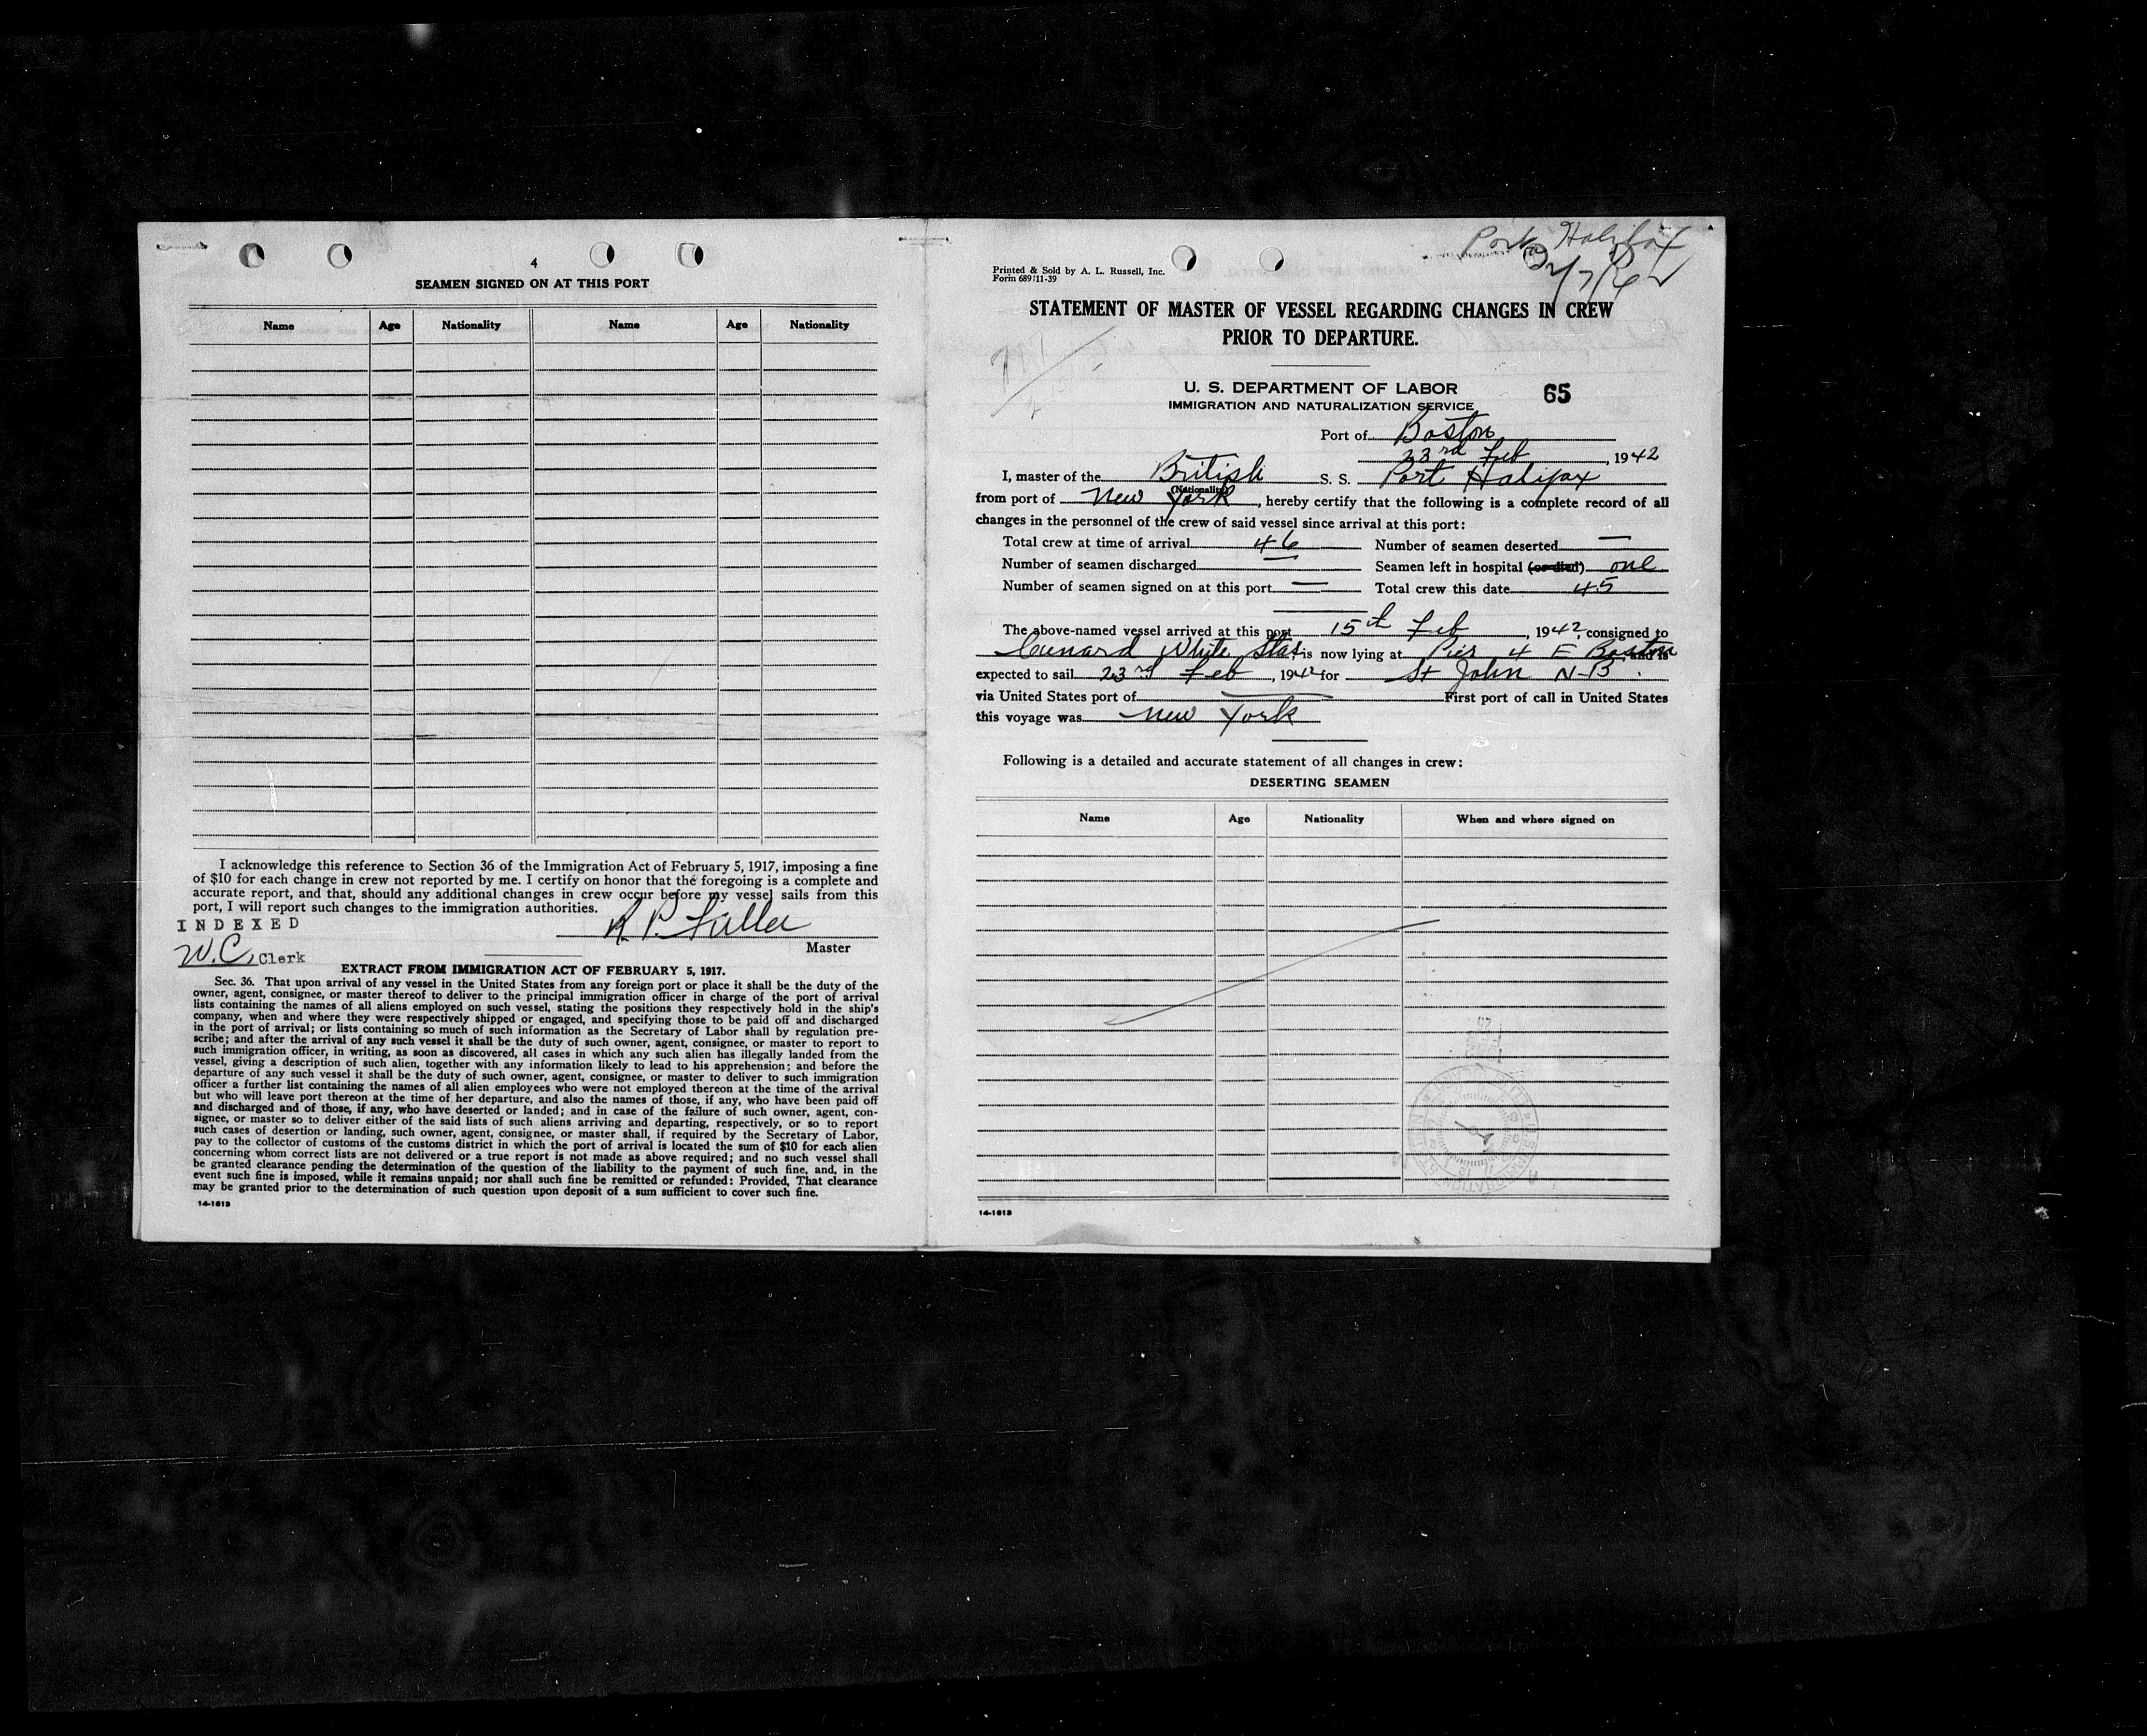 4
SEAMEN SIGNED ON AT THIS PORT
Name Age Nationality Name Age Nationality
I acknowledge this reference to Section 36 of the Immigration Act of February 5, 1917, imposing a fine
of $10 for each change in crew not reported by me. I certify on honor that the foregoing is a complete and
accurate report, and that, should any additional changes in crew occur before my vessel sails from this
port, I will report such changes to the immigration authorities.
INDEXED
R. P. Fuller
W.C. Clerk
Master
EXTRACT FROM IMMIGRATION ACT OF FEBRUARY 5, 1917.
Sec. 36. That upon arrival of any vessel in the United States from any foreign port or place it shall be the duty of the
owner, agent, consignee, or master thereof to deliver to the principal immigration officer in charge of the port of arrival
lists containing the names of all aliens employed on such vessel, stating the positions they respectively hold in the ship's
company, when and where they were respectively shipped or engaged, and specifying those to be paid off and discharged
in the port of arrival; or lists containing so much of such information as the Secretary of Labor shall by regulation pre-
scribe; and after the arrival of any such vessel it shall be the duty of such owner, agent, consignee, or master to report to
such immigration officer, in writing, as soon as discovered, all cases in which any such alien has illegally landed from the
vessel, giving a description of such alien, together with any information likely to lead to his apprehension; and before the
departure of any such vessel it shall be the duty of such owner, agent, consignee, or master to deliver to such immigration
officer a further list containing the names of all alien employees who were not employed thereon at the time of the arrival
but who will leave port thereon at the time of her departure, and also the names of those, if any, who have been paid off
and discharged and of those, if any, who have deserted or landed; and in case of the failure of such owner, agent, con-
signee, or master so to deliver either of the said lists of such aliens arriving and departing, respectively, or so to report
such cases of desertion or landing, such owner, agent, consignee, or master shall, if required by the Secretary of Labor,
pay to the collector of customs of the customs district in which the port of arrival is located the sum of $10 for each alien
concerning whom correct lists are not delivered or a true report is not made as above required; and no such vessel shall
be granted clearance pending the determination of the question of the liability to the payment of such fine, and, in the
event such fine is imposed, while it remains unpaid; nor shall such fine be remitted or refunded: Provided, That clearance
may be granted prior to the determination of such question upon deposit of a sum sufficient to cover such fine.
14-1613
Port Halifax
Printed & Sold by A. L. Russell, Inc.
Form 689 11-39
STATEMENT OF MASTER OF VESSEL REGARDING CHANGES IN CREW
PRIOR TO DEPARTURE.
U. S. DEPARTMENT OF LABOR 65
IMMIGRATION AND NATURALIZATION SERVICE
Port of Boston
23rd Feb, 1942
I, master of the British S. S. Port Halifax
(Nationality)
from port of New York, hereby certify that the following is a complete record of all
changes in the personnel of the crew of said vessel since arrival at this port:
Total crew at time of arrival 46 Number of seamen deserted —
Number of seamen discharged — Seamen left in hospital (or died) one
Number of seamen signed on at this port — Total crew this date 45
The above-named vessel arrived at this port 15th Feb, 1942, consigned to
Cunard White Star, is now lying at Pier 4 E Boston, and is
expected to sail 23rd Feb, 1942 for St John N-B.
via United States port of — First port of call in United States
this voyage was New York
Following is a detailed and accurate statement of all changes in crew:
DESERTING SEAMEN
Name Age Nationality When and where signed on
14-1613